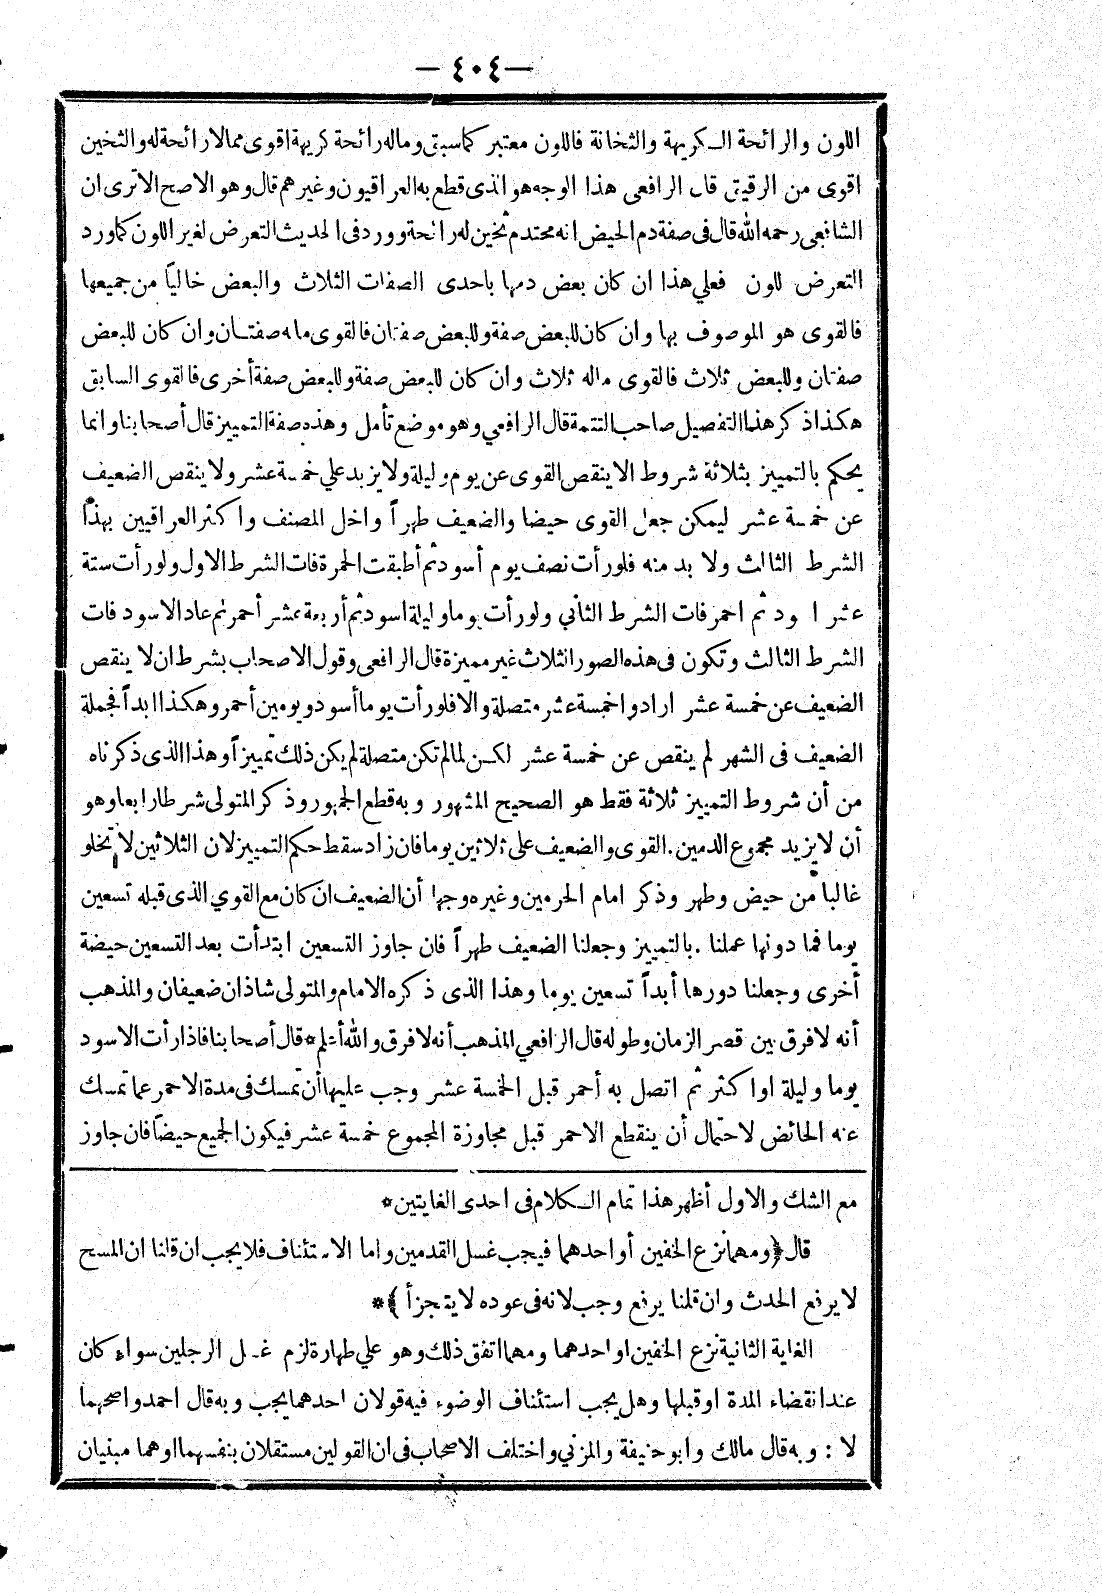 — ٤٠٤ —
اللون والرائحة الكريهة والثخانة فاللون معتبر كما سبق وماله رائحة كريهة اقوى مما لا رائحة له والثخين
اقوى من الرقيق قال الرافعى هذا الوجه هو الذى قطع به العراقيون وغيرهم قال وهو الاصح الا ترى ان
الشافعى رحمه الله قال فى صفة دم الحيض انه محتدم ثخين له رائحة وورد فى الحديث التعرض لغير اللون كما ورد
التعرض للون فعلي هذا ان كان بعض دمها باحدى الصفات الثلاث والبعض خالياً من جميعها
فالقوى هو الموصوف بها وان كان للبعض صفة وللبعض صفتان فالقوى ماله صفتـان وان كان للبعض
صفتان وللبعض ثلاث فالقوى ماله ثلاث وان كان للبعض صفة وللبعض صفة أخرى فالقوى السابق
هكذا ذكر هذا التفصيل صاحب التتمة قال الرافعي وهو موضع تأمل وهذه صفة التمييز قال أصحابنا وانما
يحكم بالتمييز بثلاثة شروط الا ينقص القوى عن يوم وليلة ولا يزيد علي خمسة عشر ولا ينقص الضعيف
عن خمسة عشر ليمكن جعل القوى حيضا والضعيف طهراً واخل المصنف واكثر العراقيين بهذا
الشرط الثالث ولا بد منه فلو رأت نصف يوم أسود ثم أطبقت الحمرة فات الشرط الاول ولو رأت ستة
عشر اسود ثم احمر فات الشرط الثاني ولو رأت يوما وليلة اسود ثم أربعة عشر أحمر ثم عاد الاسود فات
الشرط الثالث وتكون فى هذه الصور الثلاث غير مميزة قال الرافعى وقول الاصحاب بشرط ان لا ينقص
الضعيف عن خمسة عشر ارادوا خمسة عشر متصلة والا فلو رأت يوما أسود ويومين أحمر وهكذا ابداً فجملة
الضعيف فى الشهر لم ينقص عن خمسة عشر لكن لما لم تكن متصلة لم يكن ذلك تمييزاً وهذا الذى ذكرناه
من أن شروط التمييز ثلاثة فقط هو الصحيح المشهور وبه قطع الجمهور وذكر المتولى شرطا رابعا وهو
أن لا يزيد مجموع الدمين. القوى والضعيف على ثلاثين يوما فان زاد سقط حكم التمييز لان الثلاثين لا تخلو
غالباً من حيض وطهر وذكر امام الحرمين وغيره وجها أن الضعيف ان كان مع القوي الذى قبله تسعين
يوما فما دونها عملنا .بالتمييز وجعلنا الضعيف طهراً فان جاوز التسعين ابتدأت بعد التسعين حيضة
أخرى وجعلنا دورها أبداً تسعين يوما وهذا الذى ذكره الامام والمتولى شاذان ضعيفان والمذهب
أنه لا فرق بين قصر الزمان وطوله قال الرافعي المذهب أنه لا فرق والله أعلم * قال أصحابنا فاذا رأت الاسود
يوما وليلة او اكثر ثم اتصل به أحمر قبل الخمسة عشر وجب عليها أن تمسك فى مدة الاحمر عما تمسك
عنه الحائض لاحتمال أن ينقطع الاحمر قبل مجاوزة المجموع خمسة عشر فيكون الجميع حيضاً فان جاوز
مع الشك والاول أظهر هذا تمام الكلام فى احدى الغايتين *
قال ﴿ ومهما نزع الخفين أو احدهما فيجب غسل القدمين واما الاستئناف فلا يجب ان قلنا ان المسح
لا يرفع الحدث وان قلنا يرفع وجب لانه فى عوده لا يتجزأ ﴾ *
الغاية الثانية نزع الخفين او احدهما ومهما اتفق ذلك وهو علي طهارة لزم غسل الرجلين سواء كان
عند انقضاء المدة او قبلها وهل يجب استئناف الوضوء فيه قولان احدهما يجب وبه قال احمد واصحهما
لا : وبه قال مالك وابو حنيفة والمزني واختلف الاصحاب فى ان القولين مستقلان بنفسهما او هما مبنيان